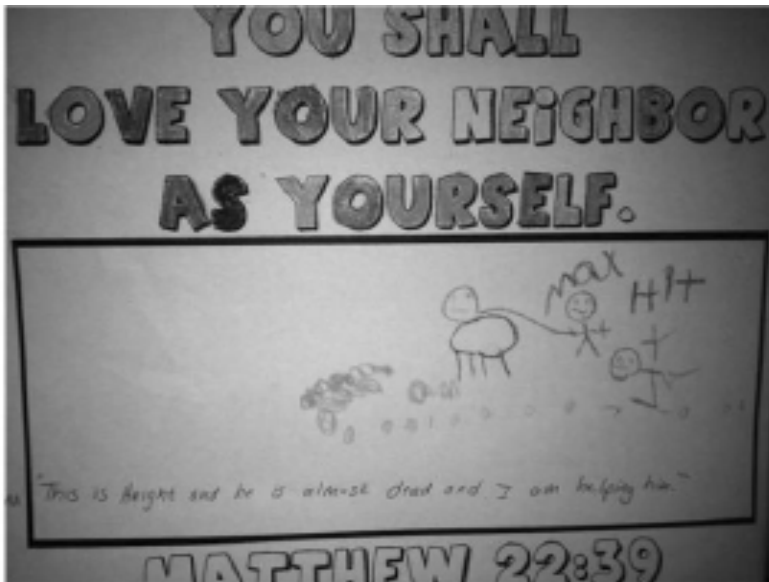 YOU SHALL
LOVE YOUR NEiGHBOR
AS YOURSELF.
max
Hit
"This is and he is almost dead and I am helping him."
MATTHEW 22:39